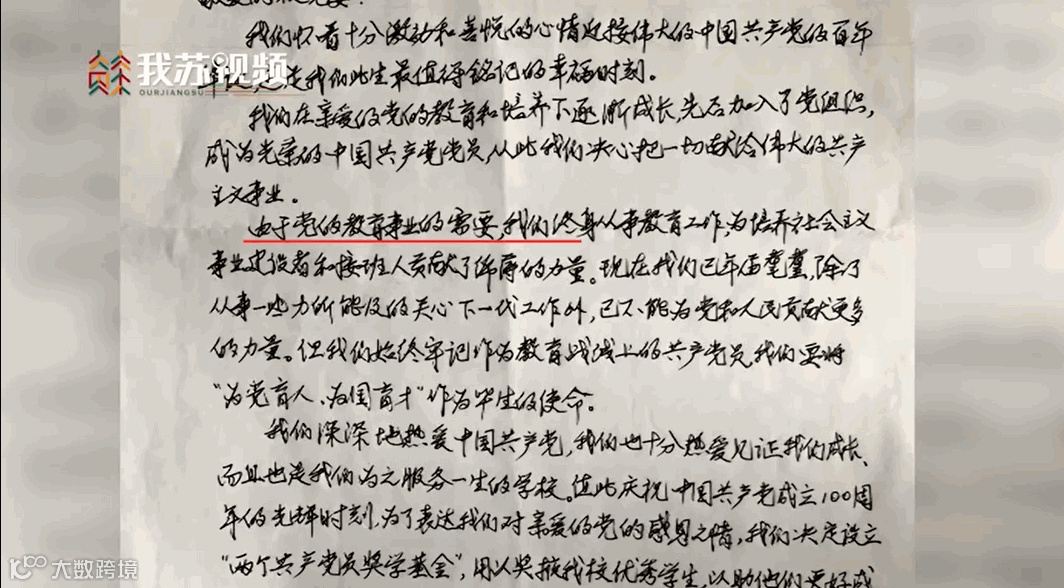 我们怀着十分激动和喜悦的心情迎接伟大的中国共产党的百年
我苏视频
OURJIANGSU
这是我们此生最值得铭记的幸福时刻。
我们在亲爱的党的教育和培养下逐渐成长,先后加入了党组织,
成为光荣的中国共产党党员,从此我们决心把一切献给伟大的共产
主义事业。
由于党的教育事业的需要,我们终身从事教育工作,为培养社会主义
事业建设者和接班人贡献了绵薄的力量。现在我们已年届耄耋,除了
从事一些力所能及的关心下一代工作外,已不能为党和人民贡献更多
的力量。但我们始终牢记作为教育战线上的共产党员,我们要将
“为党育人、为国育才”作为毕生的使命。
我们深深地热爱中国共产党,我们也十分热爱见证我们成长、
而且也是我们为之服务一生的学校。值此庆祝中国共产党成立100周
年的光辉时刻,为了表达我们对亲爱的党的感恩之情,我们决定设立
“两个共产党员奖学基金”,用以奖掖我校优秀学生,以助他们更好成
大数跨境